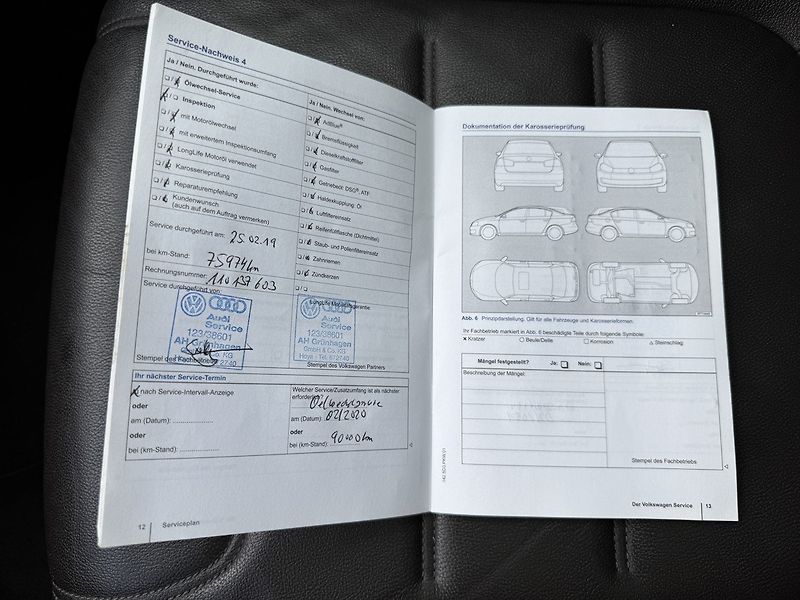 Service-Nachweis 4
Ja / Nein. Durchgeführt wurde:
Ölwechsel-Service
Inspektion
mit Motorölwechsel
mit erweitertem Inspektionsumfang
LongLife Motoröl verwendet
Karosserieprüfung
Reparaturempfehlung
Kundenwunsch
(auch auf dem Auftrag vermerken)
Service durchgeführt am: 25.02.19
bei km-Stand: 75974km
Rechnungsnummer: 110137603
Service durchgeführt von:
Audi
Service
123/38601
AH Grünhagen
GmbH & Co. KG
Stempel des Fachbetriebs
Ja / Nein. Wechsel von:
AdBlue®
Bremsflüssigkeit
Dieselkraftstofffilter
Gasfilter
Getriebeöl: DSG®, ATF
Haldexkupplung: Öl
Luftfiltereinsatz
Reifenfüllflasche (Dichtmittel)
Staub- und Pollenfiltereinsatz
Zahnriemen
Zündkerzen
LongLife Mobilitätsgarantie:
Audi
Service
123/38601
AH Grünhagen
GmbH & Co. KG
Hoya - Tel. 672740
Stempel des Volkswagen Partners
Ihr nächster Service-Termin
nach Service-Intervall-Anzeige
oder
am (Datum):
oder
bei (km-Stand):
Welcher Service/Zusatzumfang ist als nächster
erforderlich?
am (Datum): 02/2020
oder
bei (km-Stand): 90000km
12 Serviceplan
Dokumentation der Karosserieprüfung
Abb. 6 Prinzipdarstellung. Gilt für alle Fahrzeuge und Karosserieformen.
Ihr Fachbetrieb markiert in Abb. 6 beschädigte Teile durch folgende Symbole:
x Kratzer Beule/Delle Korrosion Steinschlag
Mängel festgestellt? Ja: Nein:
Beschreibung der Mängel:
Stempel des Fachbetriebs
Der Volkswagen Service 13